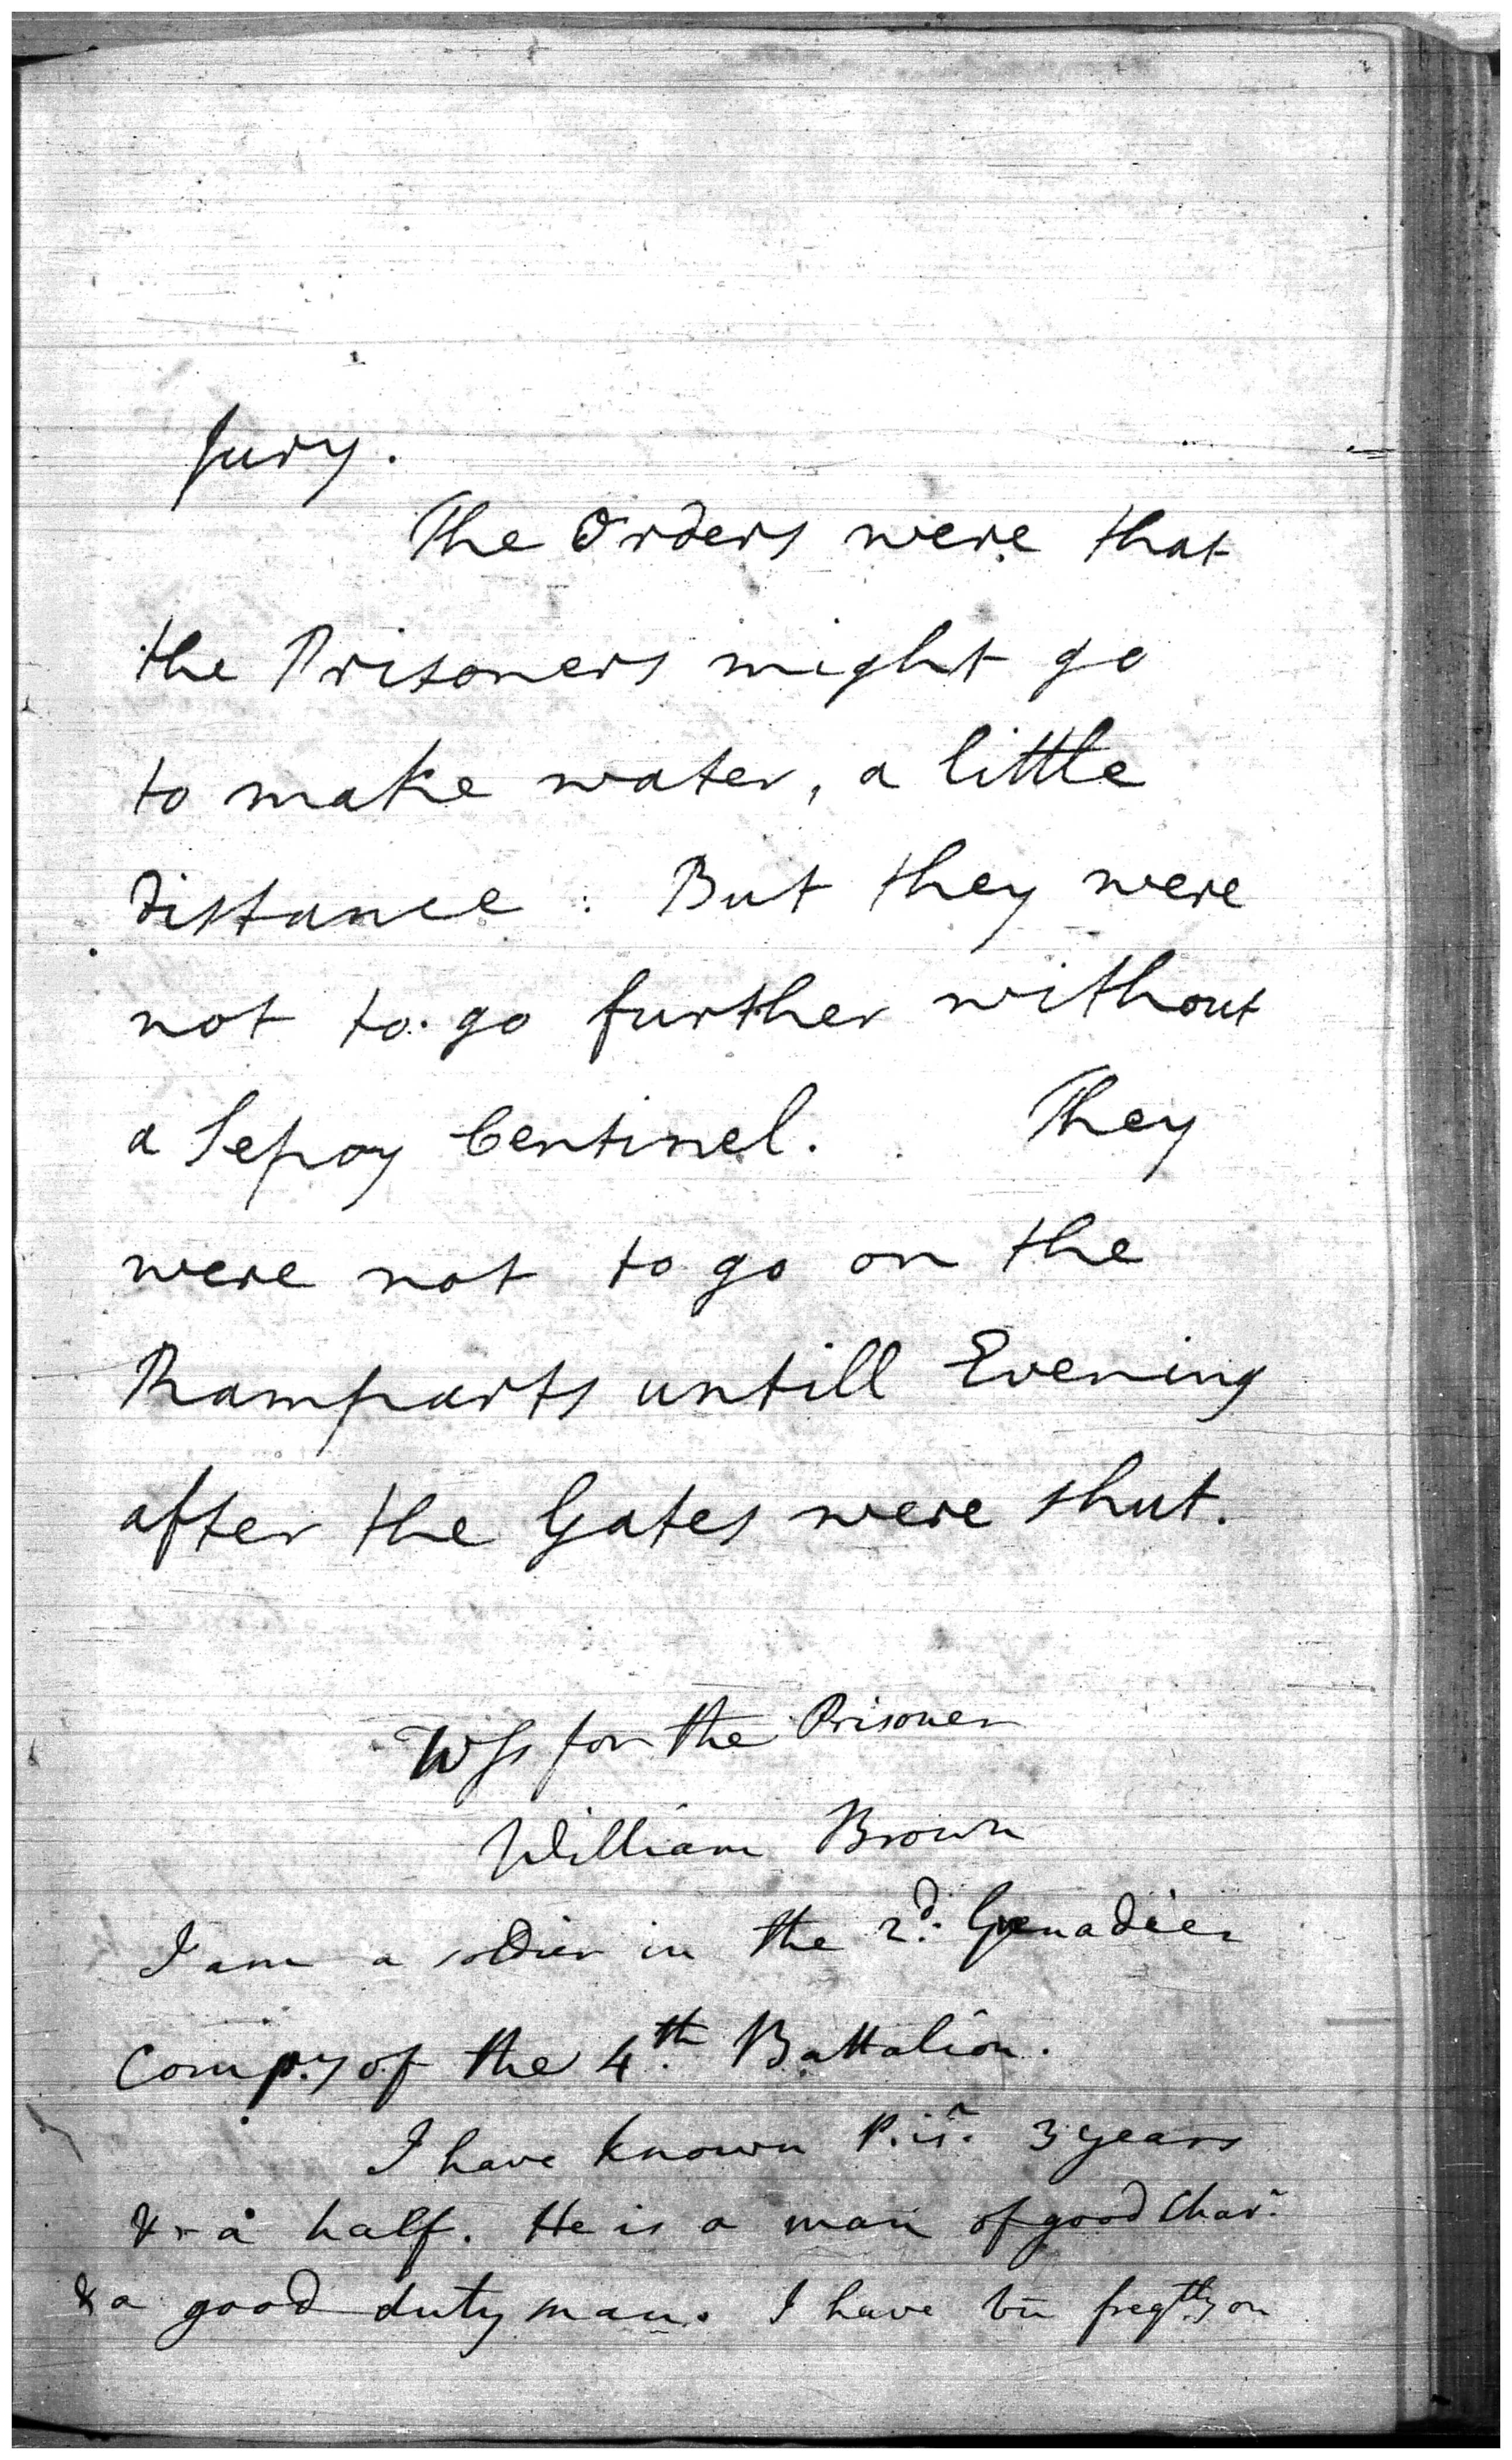 Jury.
The Orders were that
the Prisoners might go
to make water, a little
distance : But they were
not to go further without
a Sepoy Centinel. They
were not to go on the
Ramparts untill Evening
after the Gates were shut.
Wss for the Prisoner
William Brown
I am a soldier in the 2d. Grenadier
Compy of the 4th. Battalion.
I have known Prisr. 3 years
& a half. He is a man of good Charr.
& a good duty man. I have bn freqtly on